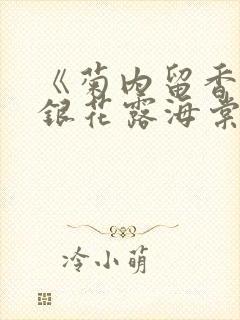 《菊内留香
銀花露海棠
冷小萌